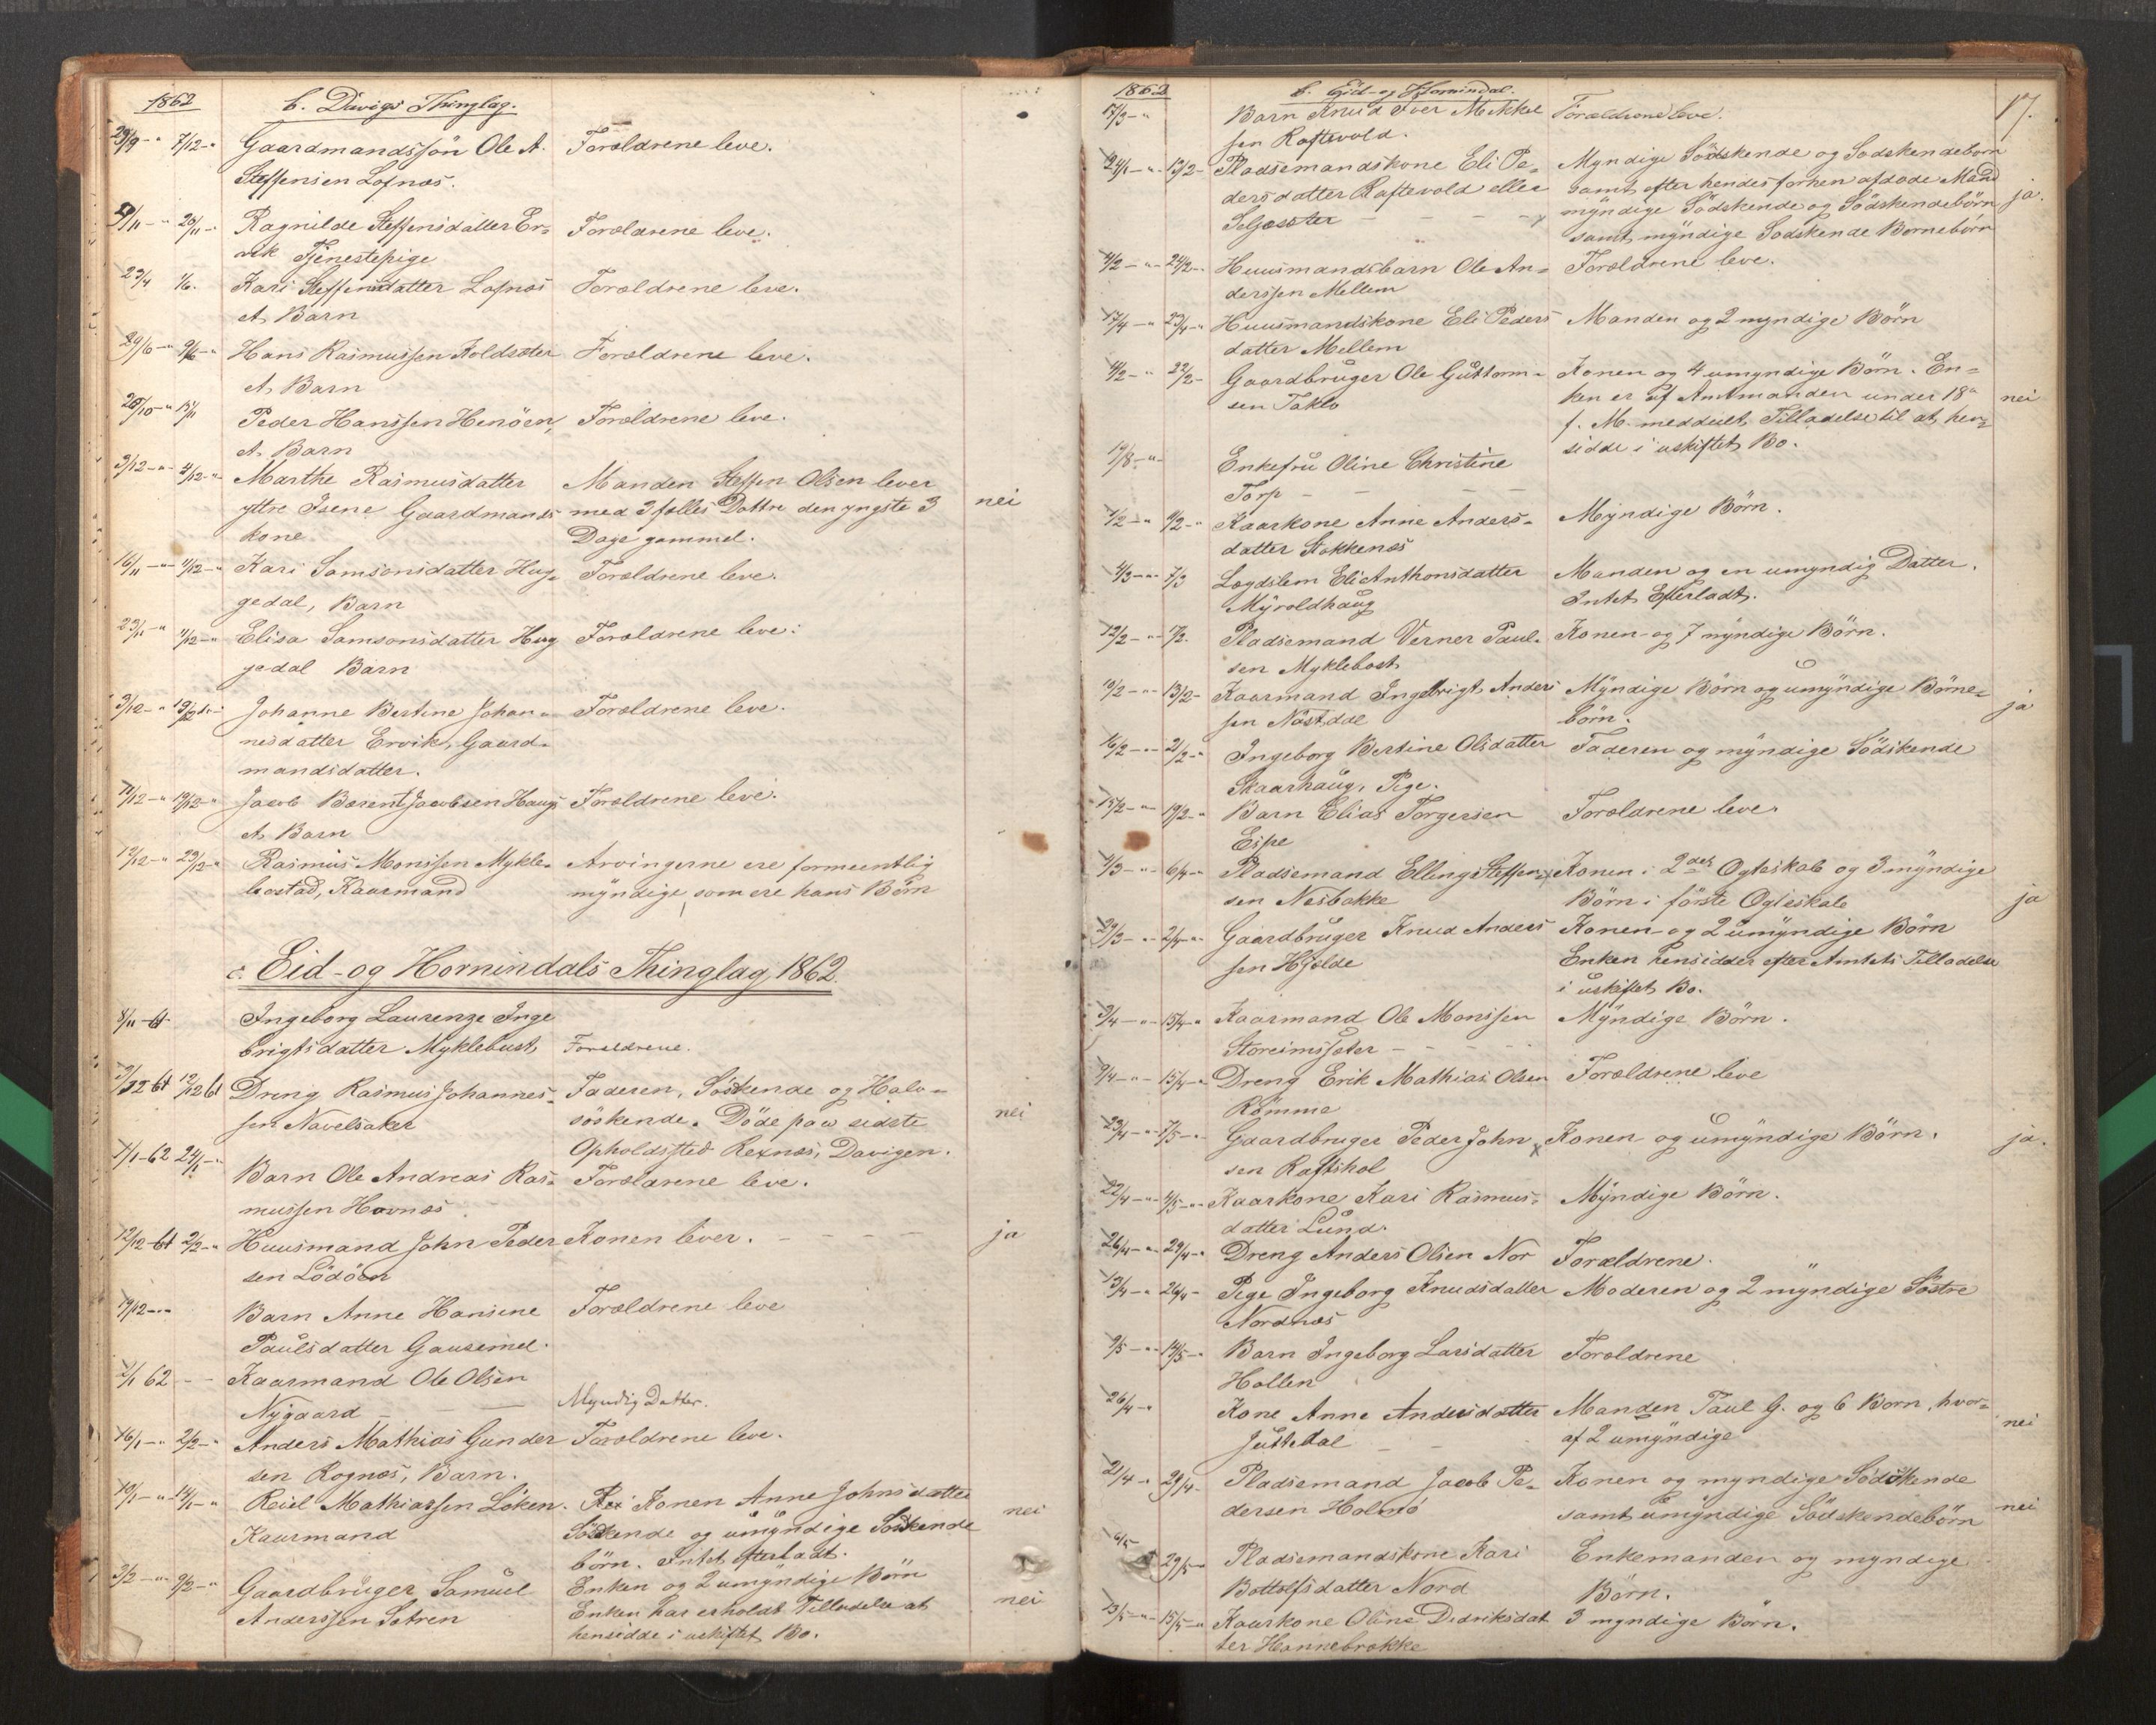 1862 b. Davigs Thinglag.
29/9 - " 7/12 - " Gaardmandssøn Ole A. Forældrene leve.
Steffensen Lofnæs.
9/11 - " 20/11 - " Ragnilde Steffensdatter Er- Forældrene leve.
vik Tjenestepige
23/4 1/6. Kari Steffensdatter Lofnæs Forældrene leve.
et Barn
29/6 - " 9/6 - " Hans Rasmussen Koldsæter Forældrene leve.
et Barn
20/10 - " 15/11 Peder Hanssen Henøen, Forældrene leve.
et Barn
3/12 - " - 4/12 - " Marthe Rasmusdatter Manden Steffen Olsen lever
yttre Isene Gaardmands med 2 fælles Døttre den yngste 3 nei
kone Dage gammel.
16/11 - " - 4/12 - " Kari Samsonsdatter Hug- Forældrene leve.
gedal, Barn
23/11 - " 4/12 - " Elisa Samsonsdatter Hug Forældrene leve.
gedal Barn
3/12 - " 19/12 - Johanne Bertine Johan- Forældrene leve.
nesdatter Ervik, Gaard-
mandsdatter.
11/12 - " 19/12 - " Jacob Berent Jacobsen Haugs Forældrene leve.
et Barn
12/12 - " 23/12 - " Rasmus Monssen Mykle- Arvingerne ere formeentlig
bostad, Kaarmand myndige, som ere hans Børn
c. Eid- og Hornindals Thinglag 1862.
8/11 - 61 Ingeborg Laurenze Inge
brigtsdatter Myklebust, Forældrene.
3/12 61 12/12 61 Dreng Rasmus Johannes- Faderen, Søskende og Halv-
sen Navelsaker søskende. Døde paa sidste nei
Opholdssted Rexnæs, Davigen.
1/1 - 62 24/1 - " Barn Ole Andreas Ras- Forældrene leve.
mussen Havnæs
12/12 - 61 2/2 - " Huusmand John Peder Konen lever. - - - - - ja
sen Lødøen
19/12 - " - Barn Anne Hansine Forældrene leve
Paulsdatter Gausemel.
2/1 62 - - Kaarmand Ole Olsen
Nygaard - - Myndig Datter.
16/1 - " 2/2 - " Anders Mathias Gunder Forældrene leve.
sen Rognæs, Barn.
10/1 - " - 14/1 - " Reiel Mathiassen Løken. Konen Anne Johnsdatter nei
Kaarmand Sødskende og umyndige Sødskende
børn. Intet efterladt.
3/2 - " - 9/2 - " Gaardbruger Samuel Enken og 2 umyndige Børn
Anderssen Sætren Enken har erholdt Tilladelse at nei
hensidde i uskiftet Bo.
1862 b. Eid- og Hornindal. 17.
17/3 - " Barn Knud Iver Mikkel Forældrene leve.
sen Raftevold.
24/1 - " - 13/2 - Pladsemandskone Eli Pe- Myndige Sødskende og Sødskendebørn
dersdatter Raftevold eller samt efter hendes forhen afdøde Mand ja.
Seljesæter - - - - myndige Sødskende og Sødskendebørn
samt myndige Sødskende Børnebørn
4/2 - " - 24/2 - " Huusmandsbarn Ole An- Forældrene leve.
derssen Mellem
17/4 - " - 23/4 - " Huusmandskone Eli Peders Manden og 2 myndige Børn
datter Mellem
4/2 - " 22/2 - Gaardbruger Ole Guttorm- Konen og 4 umyndige Børn. En-
sen Taklo ken er af Amtmanden under 18de nei
f. M. meddeelt Tilladelse til at hen-
sidde i uskiftet Bo.
19/8 - " - Enkefru Oline Christine
Torp - - - -
1/2 - " 9/2 - " Kaarkone Anne Anders- Myndige Børn.
datter Stokkenæs
4/3 - " - 7/3 Lægdslem Eli Anthonsdatter Manden og en umyndig Datter.
Myroldhaug Intet Efterladt.
12/2 - " - 17/2. Pladsemand Verner Paul- Konen og 7 myndige Børn.
sen Myklebost
10/2 - " - 13/2 - Kaarmand Ingebrigt Anders Myndige Børn og umyndige Børne- ja
sen Nøstdal børn.
16/2 - " - 21/2 - " Ingeborg Bertine Olsdatter Faderen og myndige Sødskende
Skaarhaug, Pige.
15/2 - " - 19/2 - Barn Elias Torgersen Forældrene leve.
Espe
4/3 - " - 6/4 - " Pladsemand Elling Steffen- Konen i 2det Ægteskab og 3 myndige
sen Nesbakke Børn i første Ægteskab ja
29/3 - " - 2/4 - " Gaardbruger Knud Anders Konen og 2 umyndige Børn
sen Hjelde Enken hensidder efter Amtets Tilladelse
i uskiftet Bo.
3/4 - " - 15/4 - " Kaarmand Ole Monssen Myndige Børn.
Storeimsæter - - - -
9/4 - " - 15/4 - " Dreng Erik Mathias Olsen Forældrene leve
Rømme
23/4 - " - 7/5 - " Gaardbruger Peder John Konen og umyndige Børn. ja.
sen Raftshol
22/4 - " - 4/5 - " Kaarkone Kari Rasmus- Myndige Børn.
datter Lund.
26/4 - " - 29/4 - " Dreng Anders Olsen Nor Forældrene.
13/4 - " 26/4 - Pige Ingeborg Knudsdatter Moderen og 2 myndige Søstre
Nordnæs
9/5 - " - 14/5 - " Barn Ingeborg Larsdatter Forældrene
Hollen
26/4 - " Kone Anne Andersdatter Manden Paul G. og 6 Børn, hvor- nei
Juttedal - - af 2 umyndige
21/4 - " 29/4 - Pladsemand Jacob Pe- Konen og myndige Sødskende
dersen Holmø samt umyndige Sødskendebørn nei
6/5 29/5 - " Pladsemandskone Kari Enkemanden og myndige
Bottolfsdatter Nord Børn.
13/5 - " - 15/5 - " Kaarkone Oline Dedriksdat 3 myndige Børn.
ter Hannebrekke